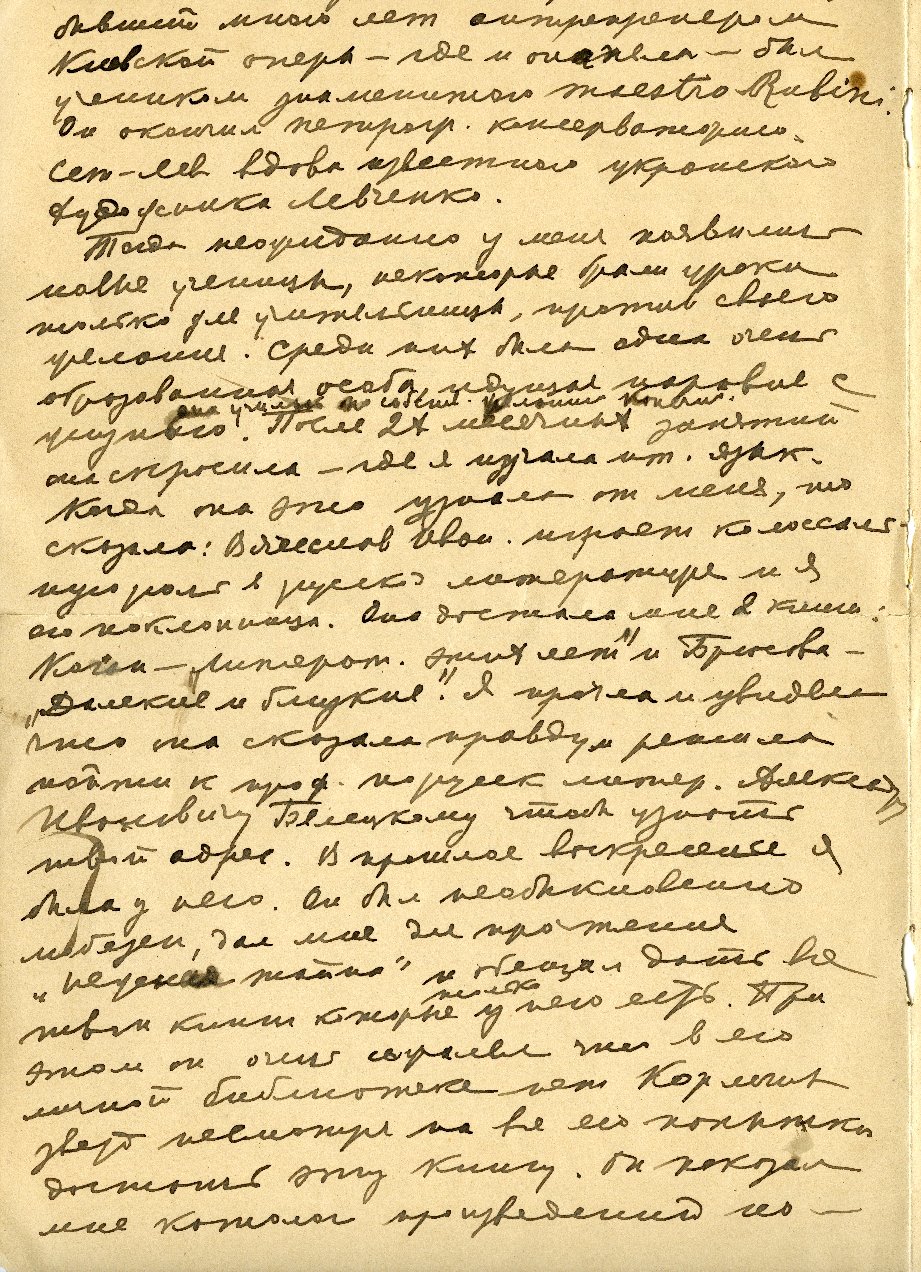 бывший много лет антрепренером
Киевской оперы – где и она пела – был
учеником знаменитого maestro Rubini.
Он окончил петрогр. консерваторию.
Сет-Лев вдова известного украинского
художника Левченко.
Тогда неожиданно у меня появились
новые ученицы, некоторые брали уроки
только для учительницы, против своего
желания. Среди них была одна очень
образованная особа, идущая наравне с
она училась по собств. желанию
жизнью. После 2х месячных занятий
она спросила – где я изучала ит. язык.
Когда она это узнала от меня, то
сказала: Вячеслав Иван. играет колоссаль-
ную роль в русск литературе и я
его поклонница. Она достала мне 2 книги:
Коган – „Литерат. этих лет" и Брюсова –
„Далекие и близкие". Я прочла и увидела
что она сказала правду и решила
пойти к проф. по русск литер. Александру
Ивановичу Белецкому чтоб узнать
твой адрес. В прошлое воскресение я
была у него. Он был необыкновенно
любезен, дал мне для прочтения
„Нежная тайна" и обещал дать все
только
твои книги которые у него есть. При
этом он очень жалел что в его
личной библиотеке нет Кормчих
звезд несмотря на все его попытки
достать эту книгу. Он показал
мне каталог произведений по –